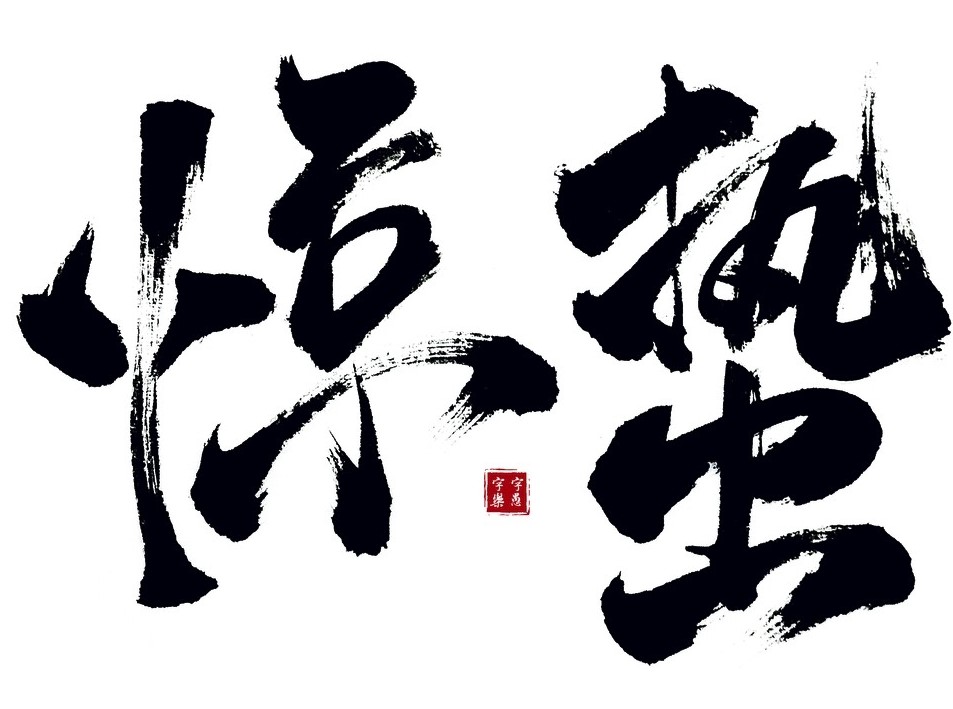 惊蛰
字愚字樂